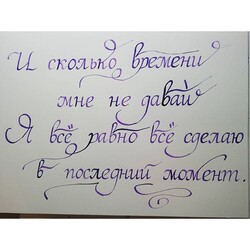 И сколько времени
мне не давай
Я всё равно всё сделаю
в последний момент.